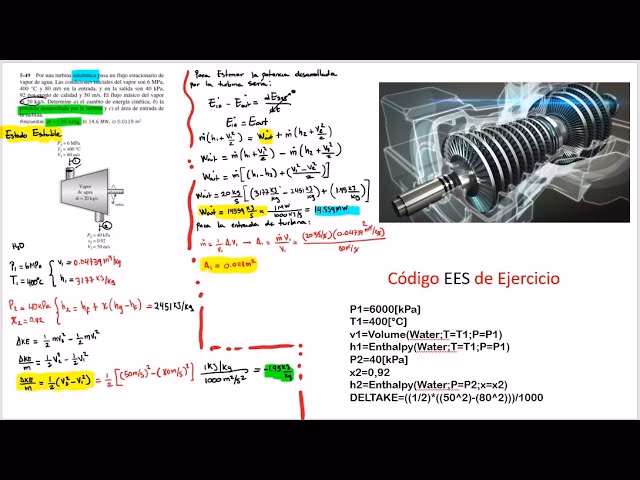 5-49 Por una turbina adiabática pasa un flujo estacionario de
vapor de agua. Las condiciones iniciales del vapor son 6 MPa,
400 °C y 80 m/s en la entrada, y en la salida son 40 kPa,
92 por ciento de calidad y 50 m/s. El flujo másico del vapor
es 20 kg/s. Determine a) el cambio de energía cinética, b) la
potencia desarrollada por la turbina y c) el área de entrada de
la turbina.
Respuestas: a) -1.95 kJ/kg, b) 14.6 MW, c) 0.0119 m²
Estado Estable
P₁ = 6 MPa
T₁ = 400 °C
V₁ = 80 m/s
Vapor
de agua
ṁ = 20 kg/s
P₂ = 40 kPa
x₂ = 0.92
V₂ = 50 m/s
H₂O
P₁ = 6MPa { v₁ = 0.04739 m³/kg
T₁ = 400°C { h₁ = 3177 KJ/kg
P₂ = 40kPa { h₂ = hf + x(hg-hf) = 2451 KJ/kg
x₂ = 0.92
ΔKE = ½ mV₂² - ½ mV₁²
ΔKE/m = ½ V₂² - ½ V₁²
ΔKE/m = ½ (V₂² - V₁²) = ½ [(50m/s)² - (80m/s)²] 1KJ/kg / 1000 m²/s² = -1.95 KJ/kg
Para Estimar la potencia desarrollada
por la turbina seria:
Ėin - Ėout = dEsis/dt
Ėin = Ėout
ṁ(h₁ + V₁²/2) = Ẇout + ṁ(h₂ + V₂²/2)
Ẇout = ṁ(h₁ + V₁²/2) - ṁ(h₂ + V₂²/2)
Ẇout = ṁ[(h₁-h₂) + (V₁²-V₂²/2)]
Ẇout = 20 kg/s [(3177 KJ/kg - 2451 KJ/kg) + (1.95 KJ/kg)]
Ẇout = 14559 KJ/s x 1MW / 1000 KJ/s = 14.559MW
para la entrada de turbina:
ṁ = 1/v₁ A₁V₁ → A₁ = ṁv₁/V₁ = (20 kg/s)(0.04739 m³/kg) / 80m/s
A₁ = 0.0118m²
Código EES de Ejercicio
P1=6000[kPa]
T1=400[°C]
v1=Volume(Water;T=T1;P=P1)
h1=Enthalpy(Water;T=T1;P=P1)
P2=40[kPa]
x2=0,92
h2=Enthalpy(Water;P=P2;x=x2)
DELTAKE=((1/2)*((50^2)-(80^2)))/1000